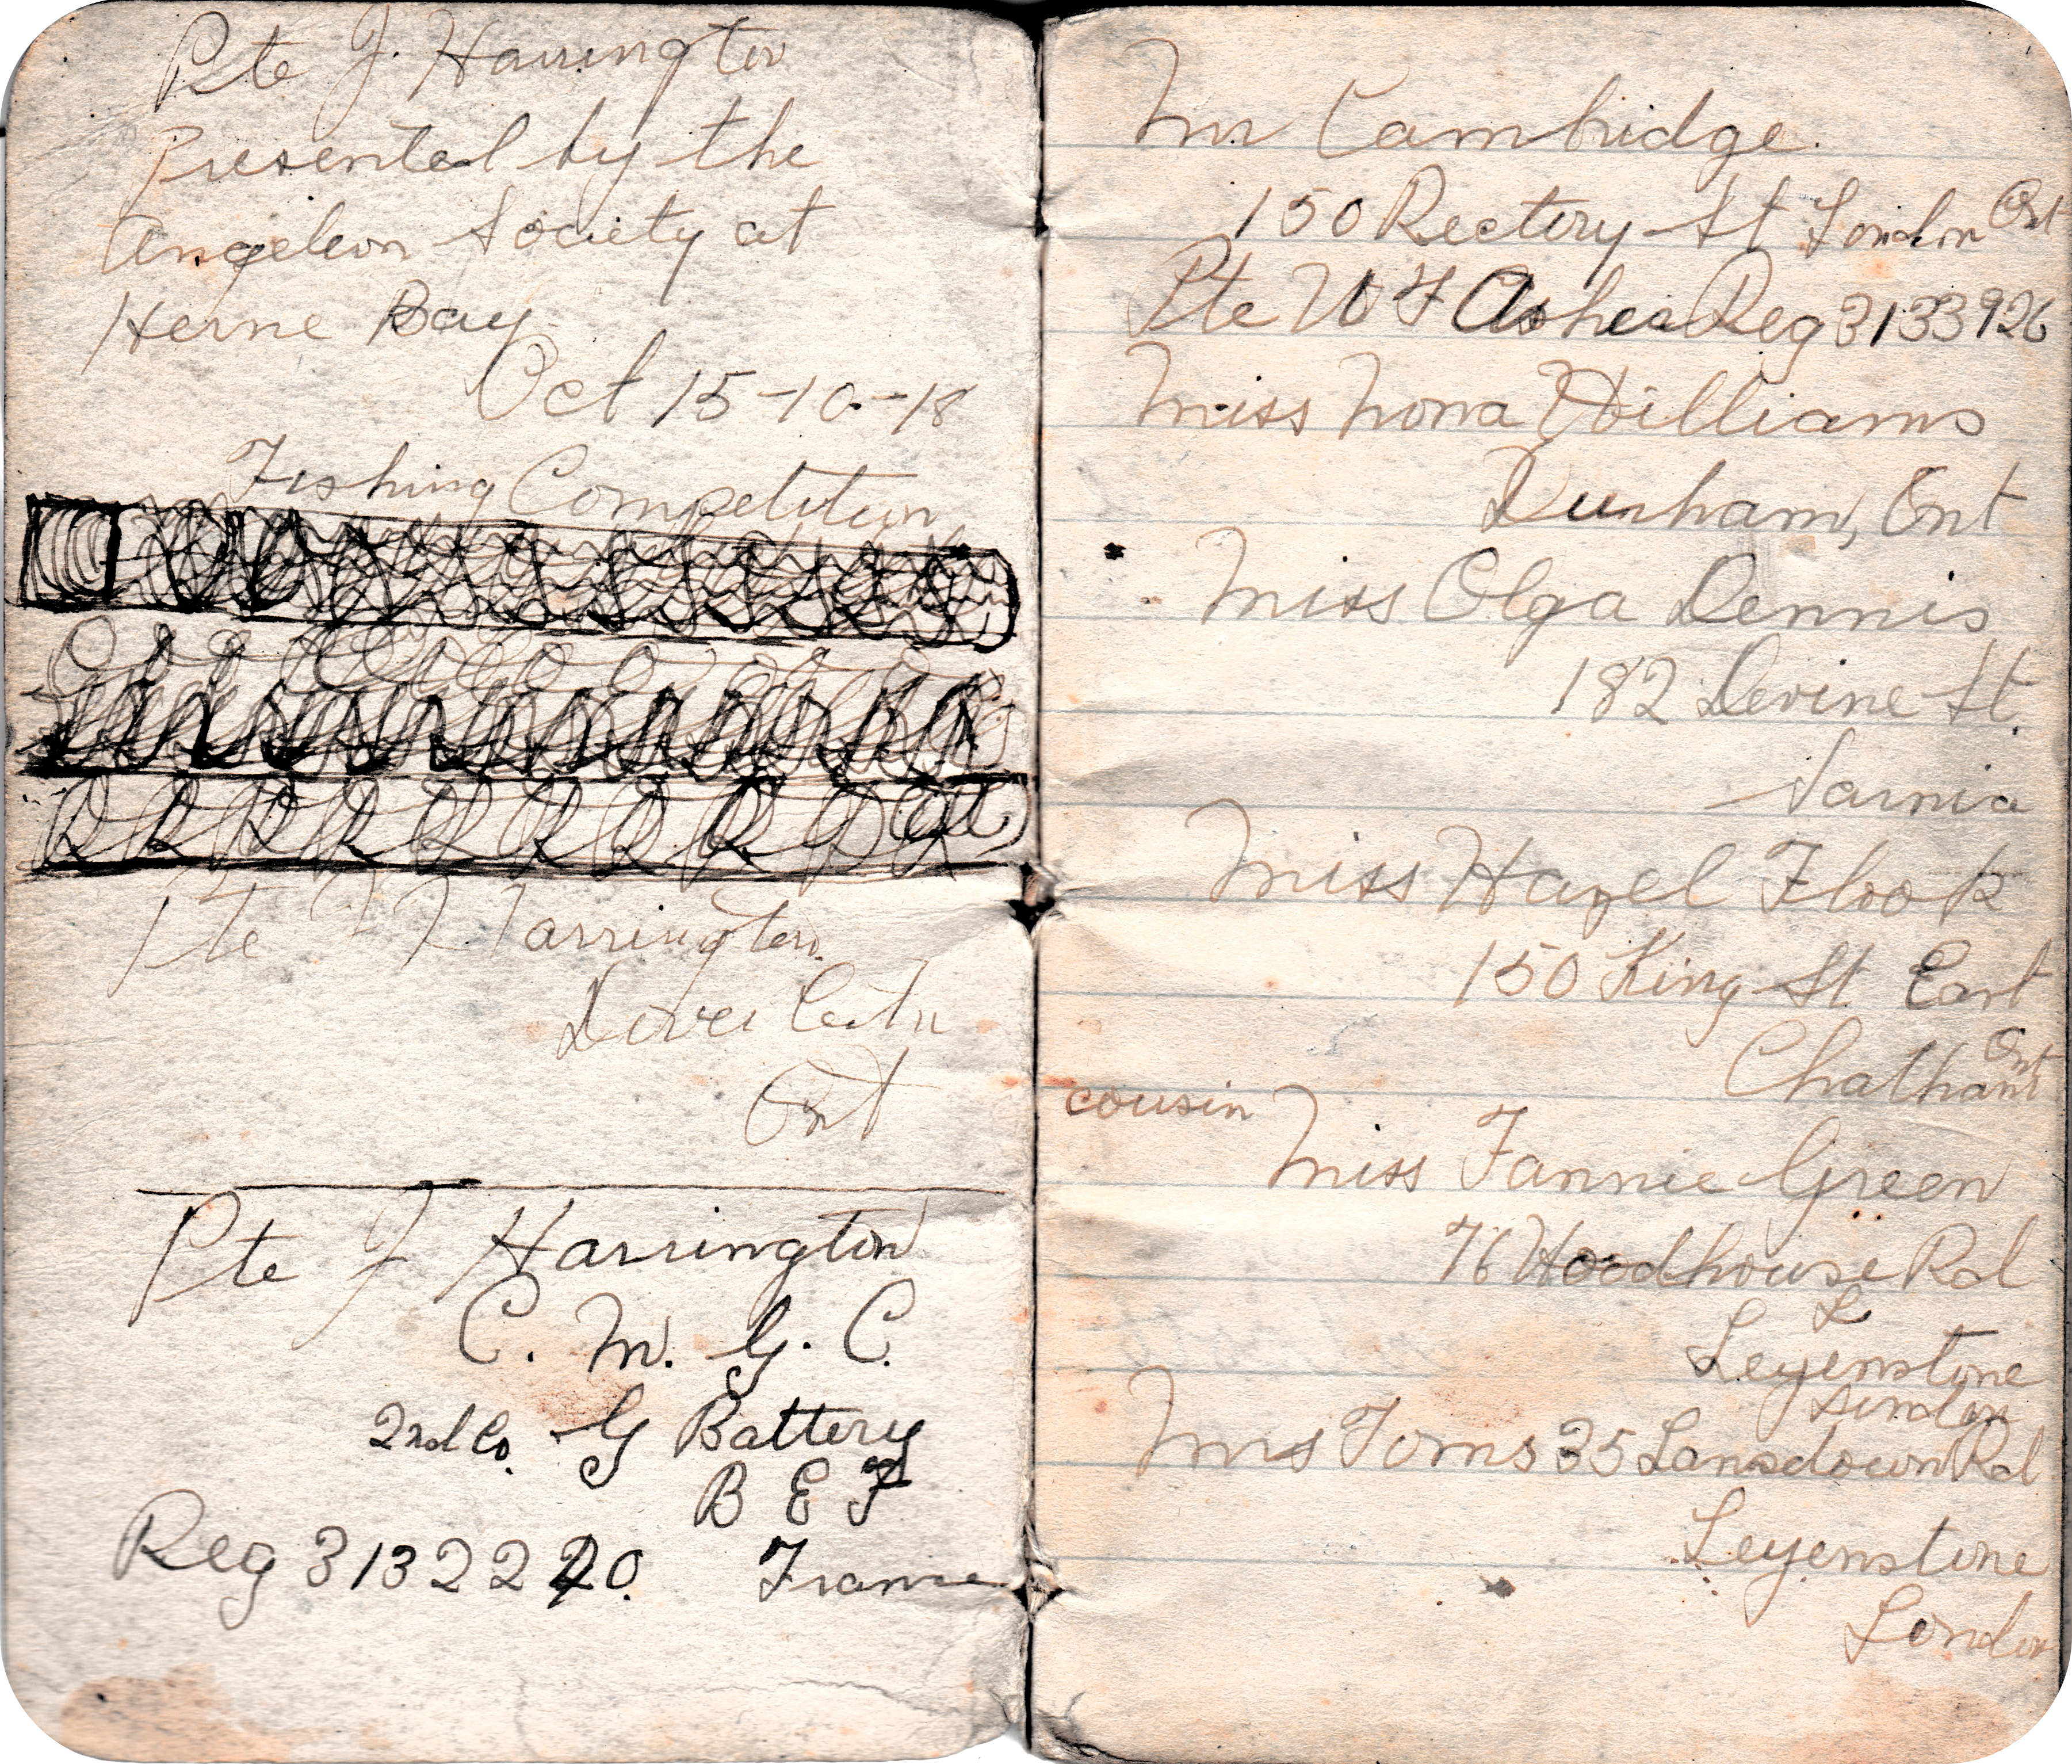 Pte J. Harrington
Presented by the
Angeleon Society at
Herne Bay
Oct 15-10-18
Fishing Competition
Pte J Harrington.
Dover Centre
Ont
Pte J Harrington
C. M. G. C.
2nd Co. G Battery
B E F
Reg 3132220. France
Mr Cambridge.
150 Rectory St London Ont
Pte W F Asher Reg 3133926
Miss Nona Williams
Dunham, Ont
Miss Olga Dennis
182 Devine St.
Sarnia
Miss Hazel Flook
150 King St. East
Chatham Ont
cousin
Miss Fannie Green
76 Woodhouse Rd
L
Leyenstone
London
Mrs Toms 35 Lansdown Rd
Leyenstone
London